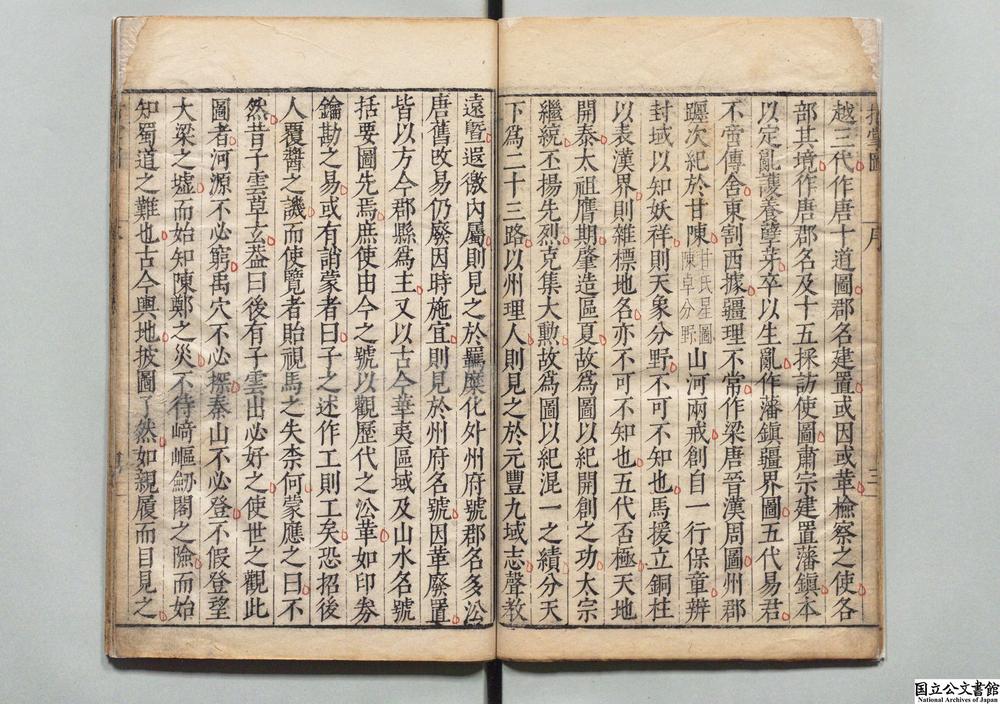 越三代作唐十道圖郡名建置或因或革檢察之使各
部其境作唐郡名及十五採訪使圖肅宗建置藩鎮本
以定亂護養孽牙卒以生亂作藩鎮疆界圖五代易君
不啻傳舍東割西據疆理不常作梁唐晉漢周圖州郡
躔次紀於甘陳甘氏星圖陳卓分野山河兩戒創自一行保章辨
封域以知妖祥則天象分野不可不知也馬援立銅柱
以表漢界則雜標地名亦不可不知也五代否極天地
開泰太祖膺期肇造區夏故為圖以紀開創之功太宗
繼統丕揚先烈克集大勲故為圖以紀混一之績分天
下為二十三路以州理人則見之於元豐九域志聲教
遠曁遐徼內屬則見之於羈縻化外州府號郡名多沿
唐舊改易仍廢因時施宜則見於州府名號因革廢置
皆以方今郡縣為主又以古今華夷區域及山水名號
括要圖先焉庶使由今之號以觀歷代之沿革如印券
鑰勘之易或有誚蒙者曰子之述作工則工矣恐招後
人覆醬之譏而使覽者貽視馬之失柰何蒙應之曰不
然昔子雲草玄葢曰後有子雲出必好之使世之觀此
圖者河源不必窮禹穴不必探秦山不必登不假登望
大梁之墟而始知陳鄭之災不待﨑嶇劒閣之險而始
知蜀道之難也古今輿地披圖了然如親履而目見之
序
三
国立公文書館
National Archives of Japan